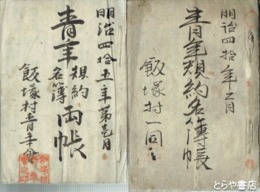 明治四拾五年第壱月
青年
規約
名簿
両帳
飯塚村青年会
明治四拾年三月
青年規約名簿帳
飯塚村一同
とらや書店